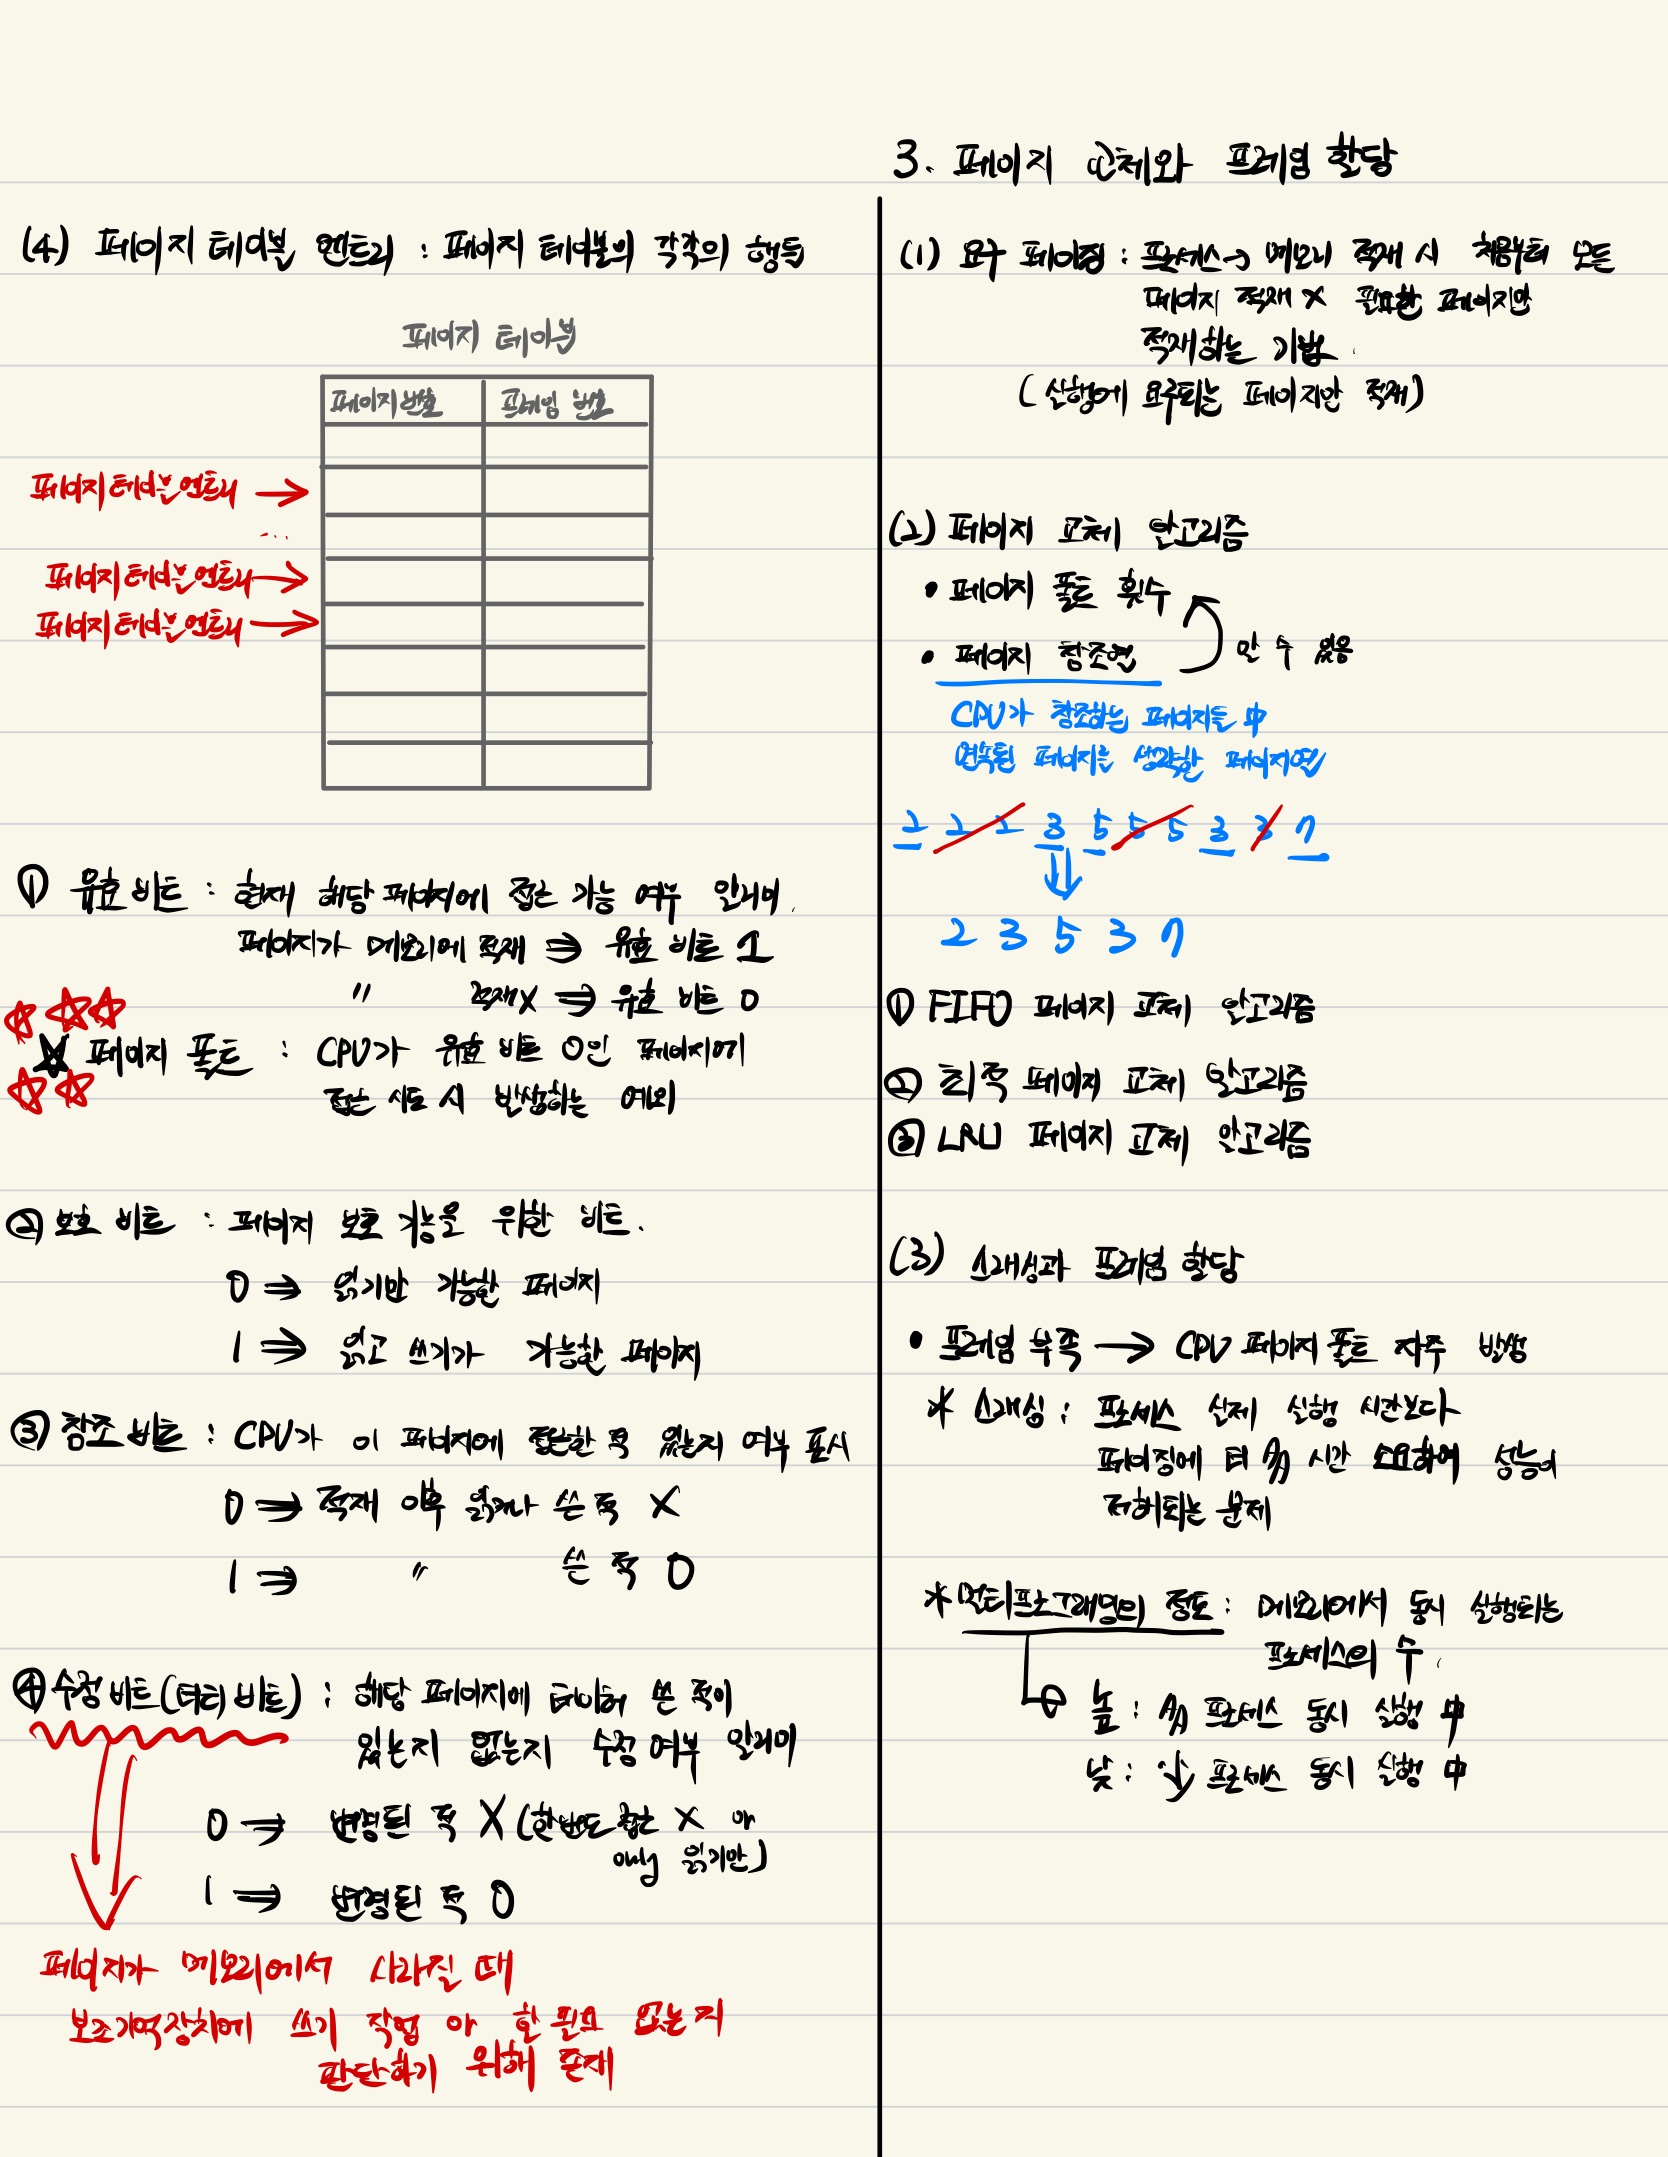 (4) 페이지 테이블 엔트리 : 페이지 테이블의 각각의 행들
페이지 테이블
페이지 번호 프레임 번호
페이지 테이블 엔트리 →
...
페이지 테이블 엔트리 →
페이지 테이블 엔트리 →
① 유효 비트 : 현재 해당 페이지에 접근 가능 여부 알려줌.
페이지가 메모리에 적재 ⇒ 유효 비트 1
〃 적재X ⇒ 유효 비트 0
페이지 폴트 : CPU가 유효 비트 0인 페이지에
접근 시도 시 발생하는 예외
② 보호 비트 : 페이지 보호 기능을 위한 비트.
0 ⇒ 읽기만 가능한 페이지
1 ⇒ 읽고 쓰기가 가능한 페이지
③ 참조 비트 : CPU가 이 페이지에 접근한 적 있는지 여부 표시
0 ⇒ 적재 이후 읽거나 쓴 적 X
1 ⇒ 〃 쓴 적 O
④ 수정 비트(더티 비트) : 해당 페이지에 데이터 쓴 적이
있는지 없는지 수정 여부 알려줌
0 ⇒ 변경된 적 X (한번도 접근 X or
only 읽기만)
1 ⇒ 변경된 적 O
페이지가 메모리에서 사라질 때
보조기억장치에 쓰기 작업 or 할 필요 없는지
판단하기 위해 존재
3. 페이지 교체와 프레임 할당
(1) 요구 페이징 : 프로세스→ 메모리 적재 시 처음부터 모든
페이지 적재 X 필요한 페이지만
적재하는 기법.
( 실행에 요구되는 페이지만 적재)
(2) 페이지 교체 알고리즘
• 페이지 폴트 횟수
• 페이지 참조열 알 수 있음
CPU가 참조하는 페이지들 中
연속된 페이지를 생략한 페이지열
2 2 2 3 5 5 5 3 3 7
2 3 5 3 7
① FIFO 페이지 교체 알고리즘
② 최적 페이지 교체 알고리즘
③ LRU 페이지 교체 알고리즘
(3) 스래싱과 프레임 할당
• 프레임 부족 → CPU 페이지 폴트 자주 발생
* 스래싱 : 프로세스 실제 실행 시간보다
페이징에 더 多 시간 소요하여 성능이
저해되는 문제
* 멀티프로그래밍의 정도 : 메모리에서 동시 실행되는
프로세스의 수.
높 : 多 프로세스 동시 실행 中
낮 : 少 프로세스 동시 실행 中